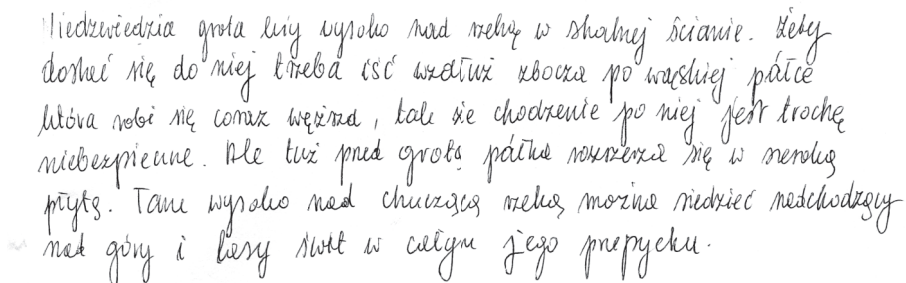 Niedzwiedzia grota leży wysoko nad rzeką w skalnej ścianie. Żeby
dostać się do niej trzeba iść wzdłuż zbocza po wąskiej półce
która robi się coraz węższa, tak że chodzenie po niej jest trochę
niebezpieczne. Ale tuż przed grotą półka rozszerza się w szeroką
płytę. Tam wysoko nad chuczącą rzeką można siedzieć nadchodzący
nad góry i lasy świt w całym jego przepychu.